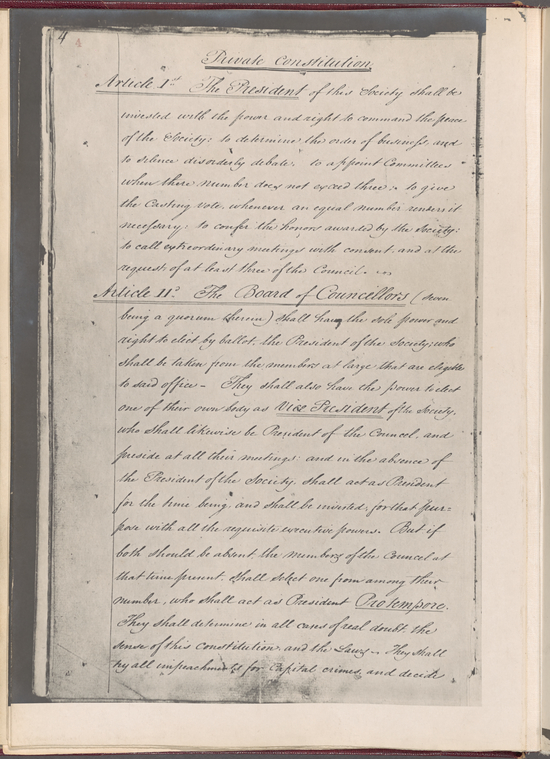 4
Private Constitution
Article 1st The President of this Society shall be
invested with the power and right to command the peace
of the Society: to determine the order of business, and
to silence disorderly debate. to appoint Committees
when there number does not exceed three. to give
the Casting vote, whenever an equal number renders it
necessary: to confer the honors awarded by the Society:
to call extraordinary meetings with consent, and at the
request of at least three of the Council.
Article 11d The Board of Councillors (seven
being a quorum therein) shall have the sole power and
right to elect by ballot, the President of the Society; who
shall be taken from the members at large that are eligible
to said office – They shall also have the power to elect
one of their own body as Vice President of the Society,
who shall likewise be President of the Council, and
preside at all their meetings: and in the absence of
the President of the Society, shall act as President
for the time being, and shall be invested, for that pur=
pose with all the requisite executive powers. But if
both should be absent, the members of the Council at
that time present, shall select one from among their
number, who shall act as President Pro tempore.
They shall determine in all cases of real doubt, the
sense of this Constitution, and the Laws – They shall
try all impeachments for Capital crimes, and decide